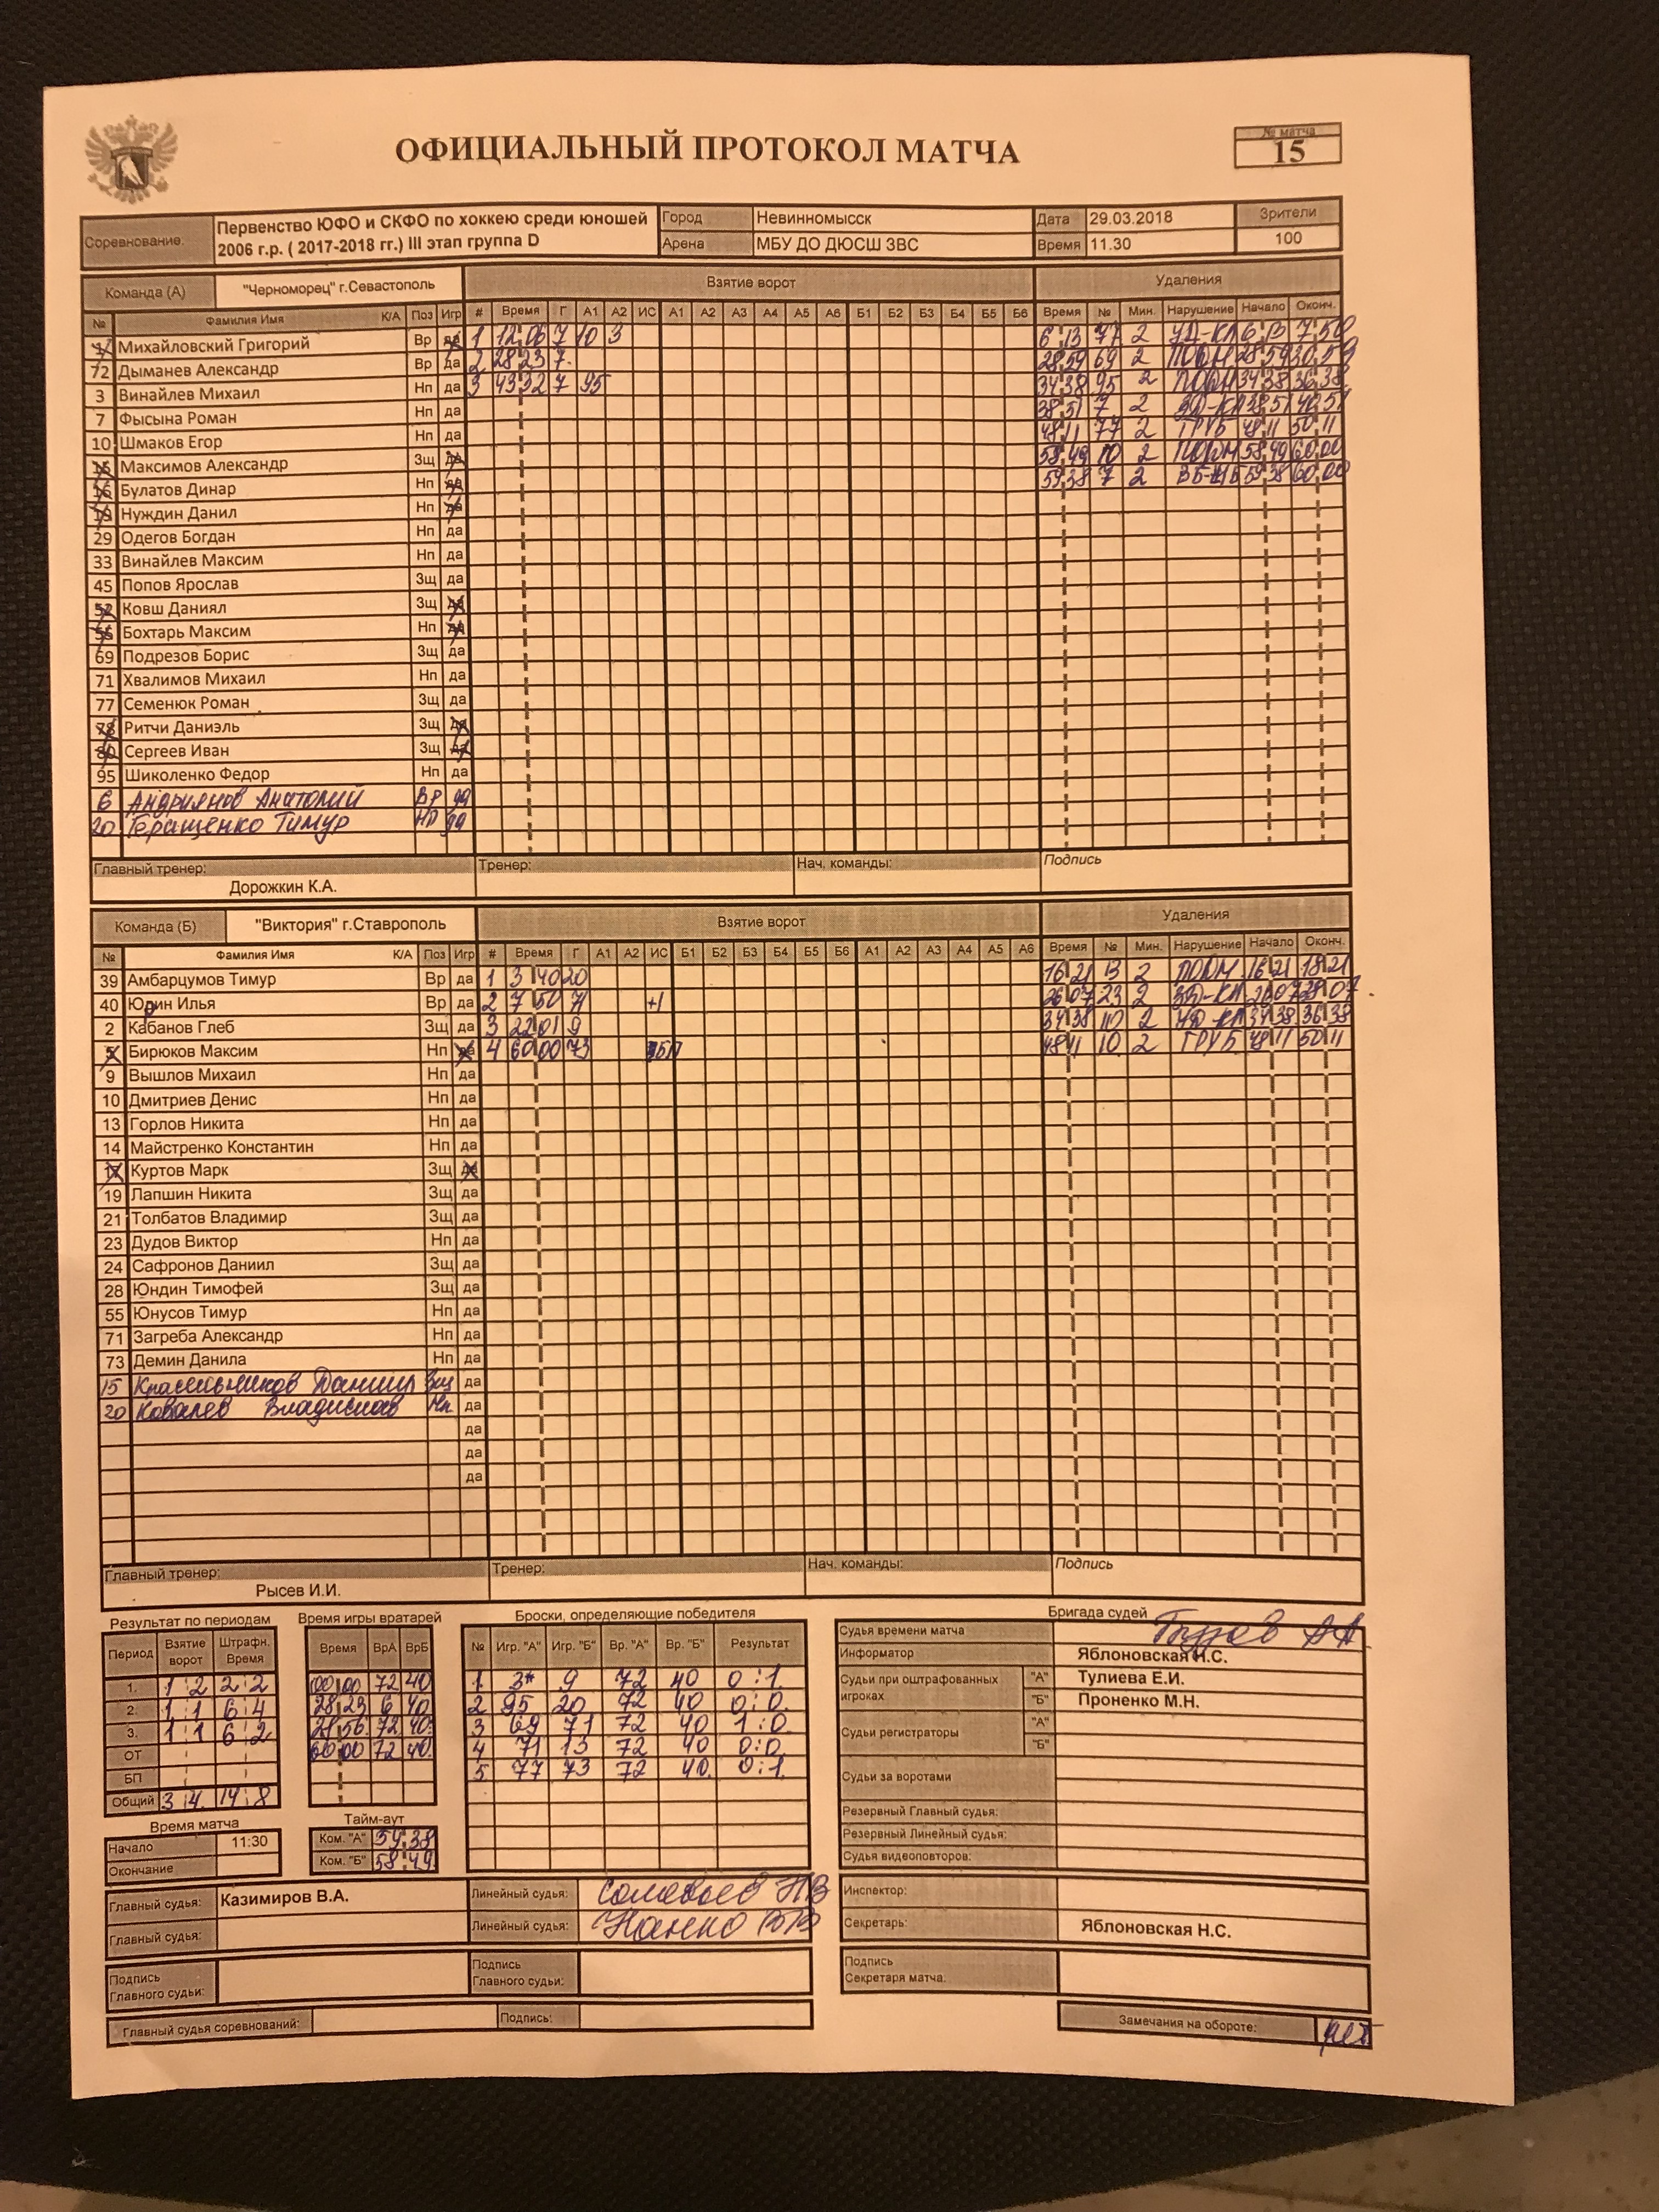 ОФИЦИАЛЬНЫЙ ПРОТОКОЛ МАТЧА
№ матча
15
Соревнование. Первенство ЮФО и СКФО по хоккею среди юношей 2006 г.р. ( 2017-2018 гг.) III этап группа D
Город Невинномысск Дата 29.03.2018 Зрители
Арена МБУ ДО ДЮСШ ЗВС Время 11.30 100
Команда (А) "Черноморец" г.Севастополь Взятие ворот Удаления
№ Фамилия Имя К/А Поз Игр # Время Г А1 А2 ИС А1 А2 А3 А4 А5 А6 Б1 Б2 Б3 Б4 Б5 Б6 Время № Мин. Нарушение Начало Оконч.
Михайловский Григорий Вр да 1 12 06 7 10 3 6 13 77 2 7 50
72 Дыманев Александр Вр да 2 28 23 7 28 59 69 2 28 59 30 59
3 Винайлев Михаил Нп да 3 43 32 7 95 34 38 95 2 34 38 36 38
7 Фысына Роман Нп да 38 51 7 2 38 51 40 51
10 Шмаков Егор Нп да 48 11 77 2 ГРУБ 48 11 50 11
15 Максимов Александр Зщ да 58 49 10 2 58 49 60 00
16 Булатов Динар Нп да 59 38 7 2 59 38 60 00
19 Нуждин Данил Нп да
29 Одегов Богдан Нп да
33 Винайлев Максим Нп да
45 Попов Ярослав Зщ да
52 Ковш Даниял Зщ да
Бохтарь Максим Нп да
69 Подрезов Борис Зщ да
71 Хвалимов Михаил Нп да
77 Семенюк Роман Зщ да
78 Ритчи Даниэль Зщ да
80 Сергеев Иван Зщ да
95 Шиколенко Федор Нп да
6 Андриянов Анатолий Вр да
20 Геращенко Тимур Нп да
Главный тренер: Тренер: Нач. команды: Подпись
Дорожкин К.А.
Команда (Б) "Виктория" г.Ставрополь Взятие ворот Удаления
№ Фамилия Имя К/А Поз Игр # Время Г А1 А2 ИС Б1 Б2 Б3 Б4 Б5 Б6 А1 А2 А3 А4 А5 А6 Время № Мин. Нарушение Начало Оконч.
39 Амбарцумов Тимур Вр да 1 3 40 20 16 21 13 2 16 21 18 21
40 Юрин Илья Вр да 2 7 50 71 +1 26 07 23 2 26 07 28 07
2 Кабанов Глеб Зщ да 3 22 01 9 34 38 10 2 34 38 36 38
Бирюков Максим Нп да 4 60 00 73 48 11 10 2 ГРУБ 48 11 50 11
9 Вышлов Михаил Нп да
10 Дмитриев Денис Нп да
13 Горлов Никита Нп да
14 Майстренко Константин Нп да
17 Куртов Марк Зщ да
19 Лапшин Никита Зщ да
21 Толбатов Владимир Зщ да
23 Дудов Виктор Нп да
24 Сафронов Даниил Зщ да
28 Юндин Тимофей Зщ да
55 Юнусов Тимур Нп да
71 Загреба Александр Нп да
73 Демин Данила Нп да
15 Красильников Даниил Зщ да
20 Ковалев Владислав Нп да
да
да
да
Главный тренер: Тренер: Нач. команды: Подпись
Рысев И.И.
Результат по периодам Время игры вратарей Броски, определяющие победителя Бригада судей
Период Взятие ворот Штрафн. Время
1. 1 2 2 2
2. 1 1 6 4
3. 1 1 6 2
ОТ
БП
Общий 3 4 14 8
Время ВрА ВрБ
00 00 72 40
28 23 6 40
28 56 72 40
60 00 72 40
№ Игр. "А" Игр. "Б" Вр. "А" Вр. "Б" Результат
1 3* 9 72 40 0:1
2 95 20 72 40 0:0
3 69 71 72 40 1:0
4 71 13 72 40 0:0
5 77 73 72 40 0:1
Судья времени матча
Информатор Яблоновская Н.С.
Судьи при оштрафованных игроках "А" Тулиева Е.И.
"Б" Проненко М.Н.
Судьи регистраторы "А"
"Б"
Судьи за воротами
Резервный Главный судья:
Резервный Линейный судья:
Судья видеоповторов:
Время матча
Начало 11:30
Окончание
Тайм-аут
Ком. "А" 59 38
Ком. "Б" 58 49
Главный судья: Казимиров В.А. Линейный судья: Соловьев Инспектор:
Главный судья: Линейный судья: Секретарь: Яблоновская Н.С.
Подпись Главного судьи: Подпись Главного судьи: Подпись Секретаря матча:
Главный судья соревнований: Подпись: Замечания на обороте: нет